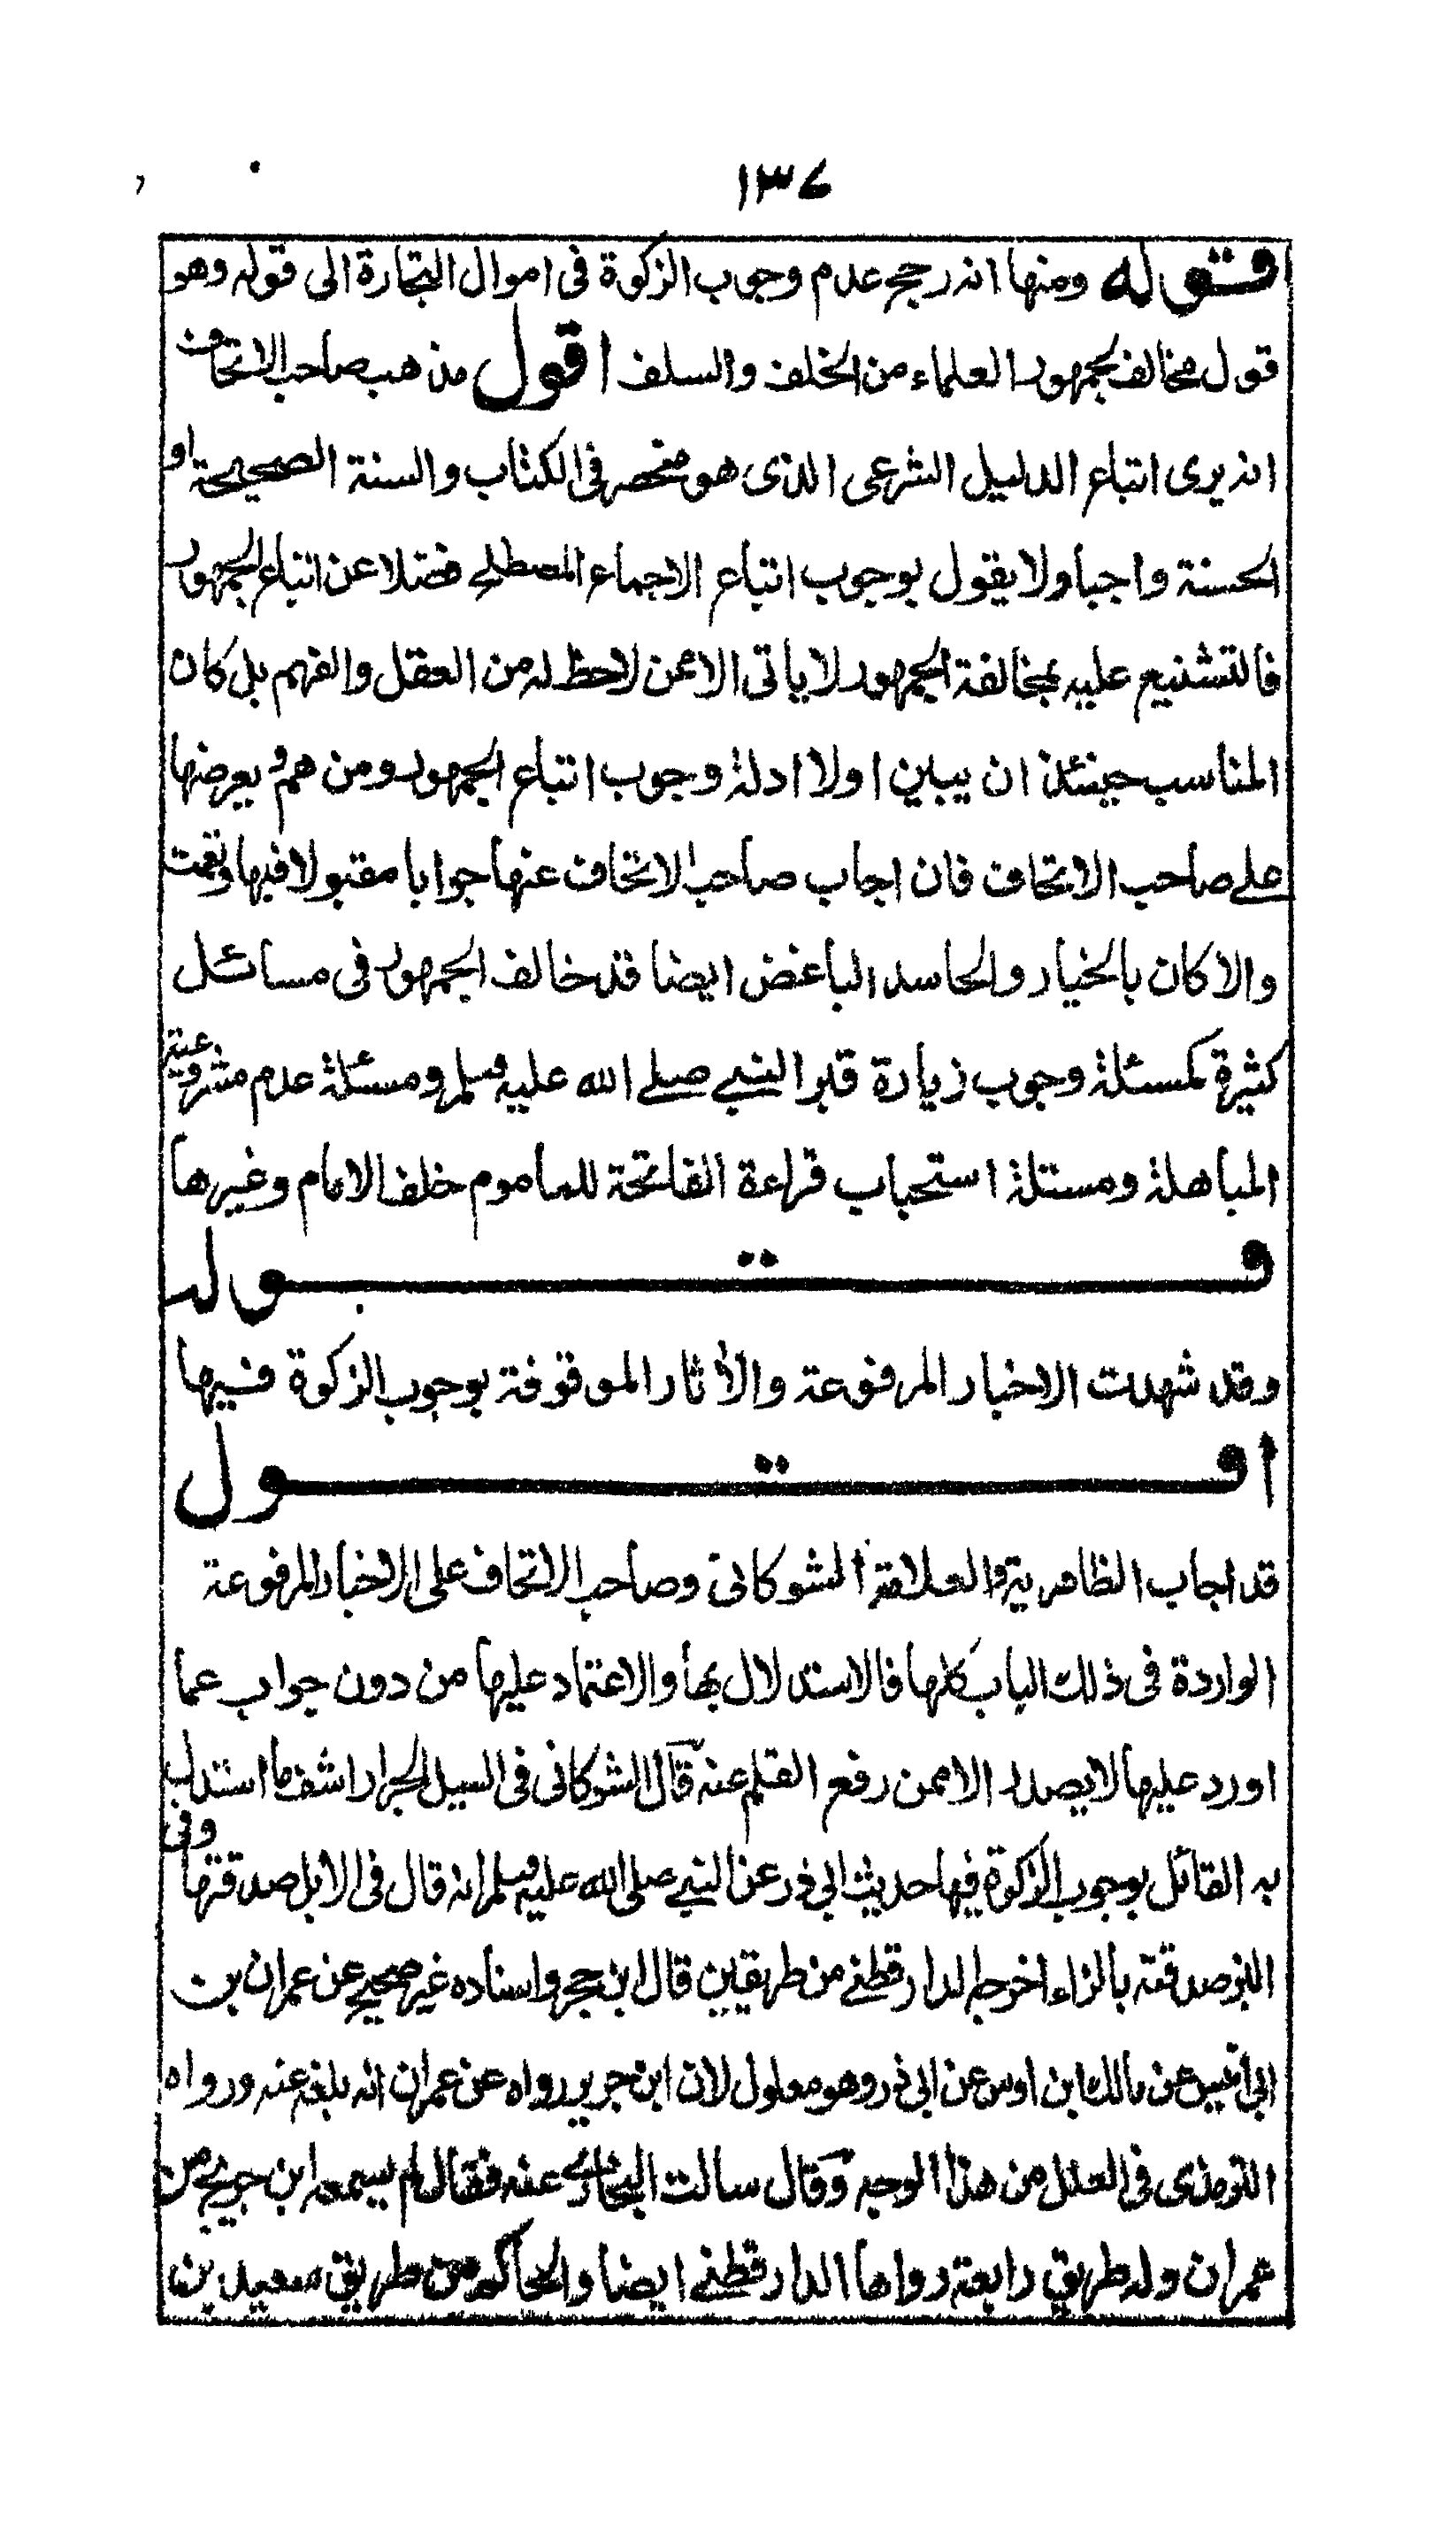 ١٣٧
قوله ومنها انه رجح عدم وجوب الزكوة فى اموال التجارة الى قوله وهو
قول مخالف لجمهور العلماء من الخلف والسلف اقول مذهب صاحب الاتحاف
انه يرى اتباع الدليل الشرعى الذى هو منحصر فى الكتاب والسنة الصحيحة او
الحسنة واجبا ولا يقول بوجوب اتباع الاجماع المصطلح فضلا عن اتباع الجمهور
فالتشنيع عليه بمخالفة الجمهور لا ياتى الا ممن لا حظ له من العقل والفهم بل كان
المناسب حينئذ ان يبين اولا ادلة وجوب اتباع الجمهور ومن هم ويعرضها
على صاحب الاتحاف فان اجاب صاحب الاتحاف عنها جوابا مقبولا فبها ونعمت
والا كان بالخيار والحاسد الباغض ايضا قد خالف الجمهور فى مسائل
كثيرة كمسئلة وجوب زيارة قبر النبي صلى الله عليه وسلم ومسئلة عدم مشروعية
المباهلة ومسئلة استحباب قراءة الفاتحة للماموم خلف الامام وغيرها
قوله
وقد شهدت الاخبار المرفوعة والأثار الموقوفة بوجوب الزكوة فيها
اقول
قد اجاب الظاهرية والعلامة الشوكانى وصاحب الاتحاف على الاخبار المرفوعة
الواردة فى ذلك الباب كلها فالاستدلال بها والاعتماد عليها من دون جواب عما
اورد عليها لا يصدر الا ممن رفع القلم عنه قال الشوكانى فى السيل الجرار اشف ما استدل
به القائل بوجوب الزكوة فيها حديث ابى ذر عن النبي صلى الله عليه وسلم انه قال فى الابل صدقتها وفى
البز صدقته بالزاء اخرجه الدارقطنى من طريقين قال ابن حجر واسناده غير صحيح عن عمران بن
ابى انيس عن مالك ابن اوس عن ابى ذر وهو معلول لان ابن جرير رواه عن عمران انه بلغه عنه ورواه
الترمذى فى العلل من هذا الوجه وقال سالت البخارى عنه فقال لم يسمعه ابن جريج من
عمران وله طريق رابعة رواها الدارقطنى ايضا والحاكم من طريق سعيد بن